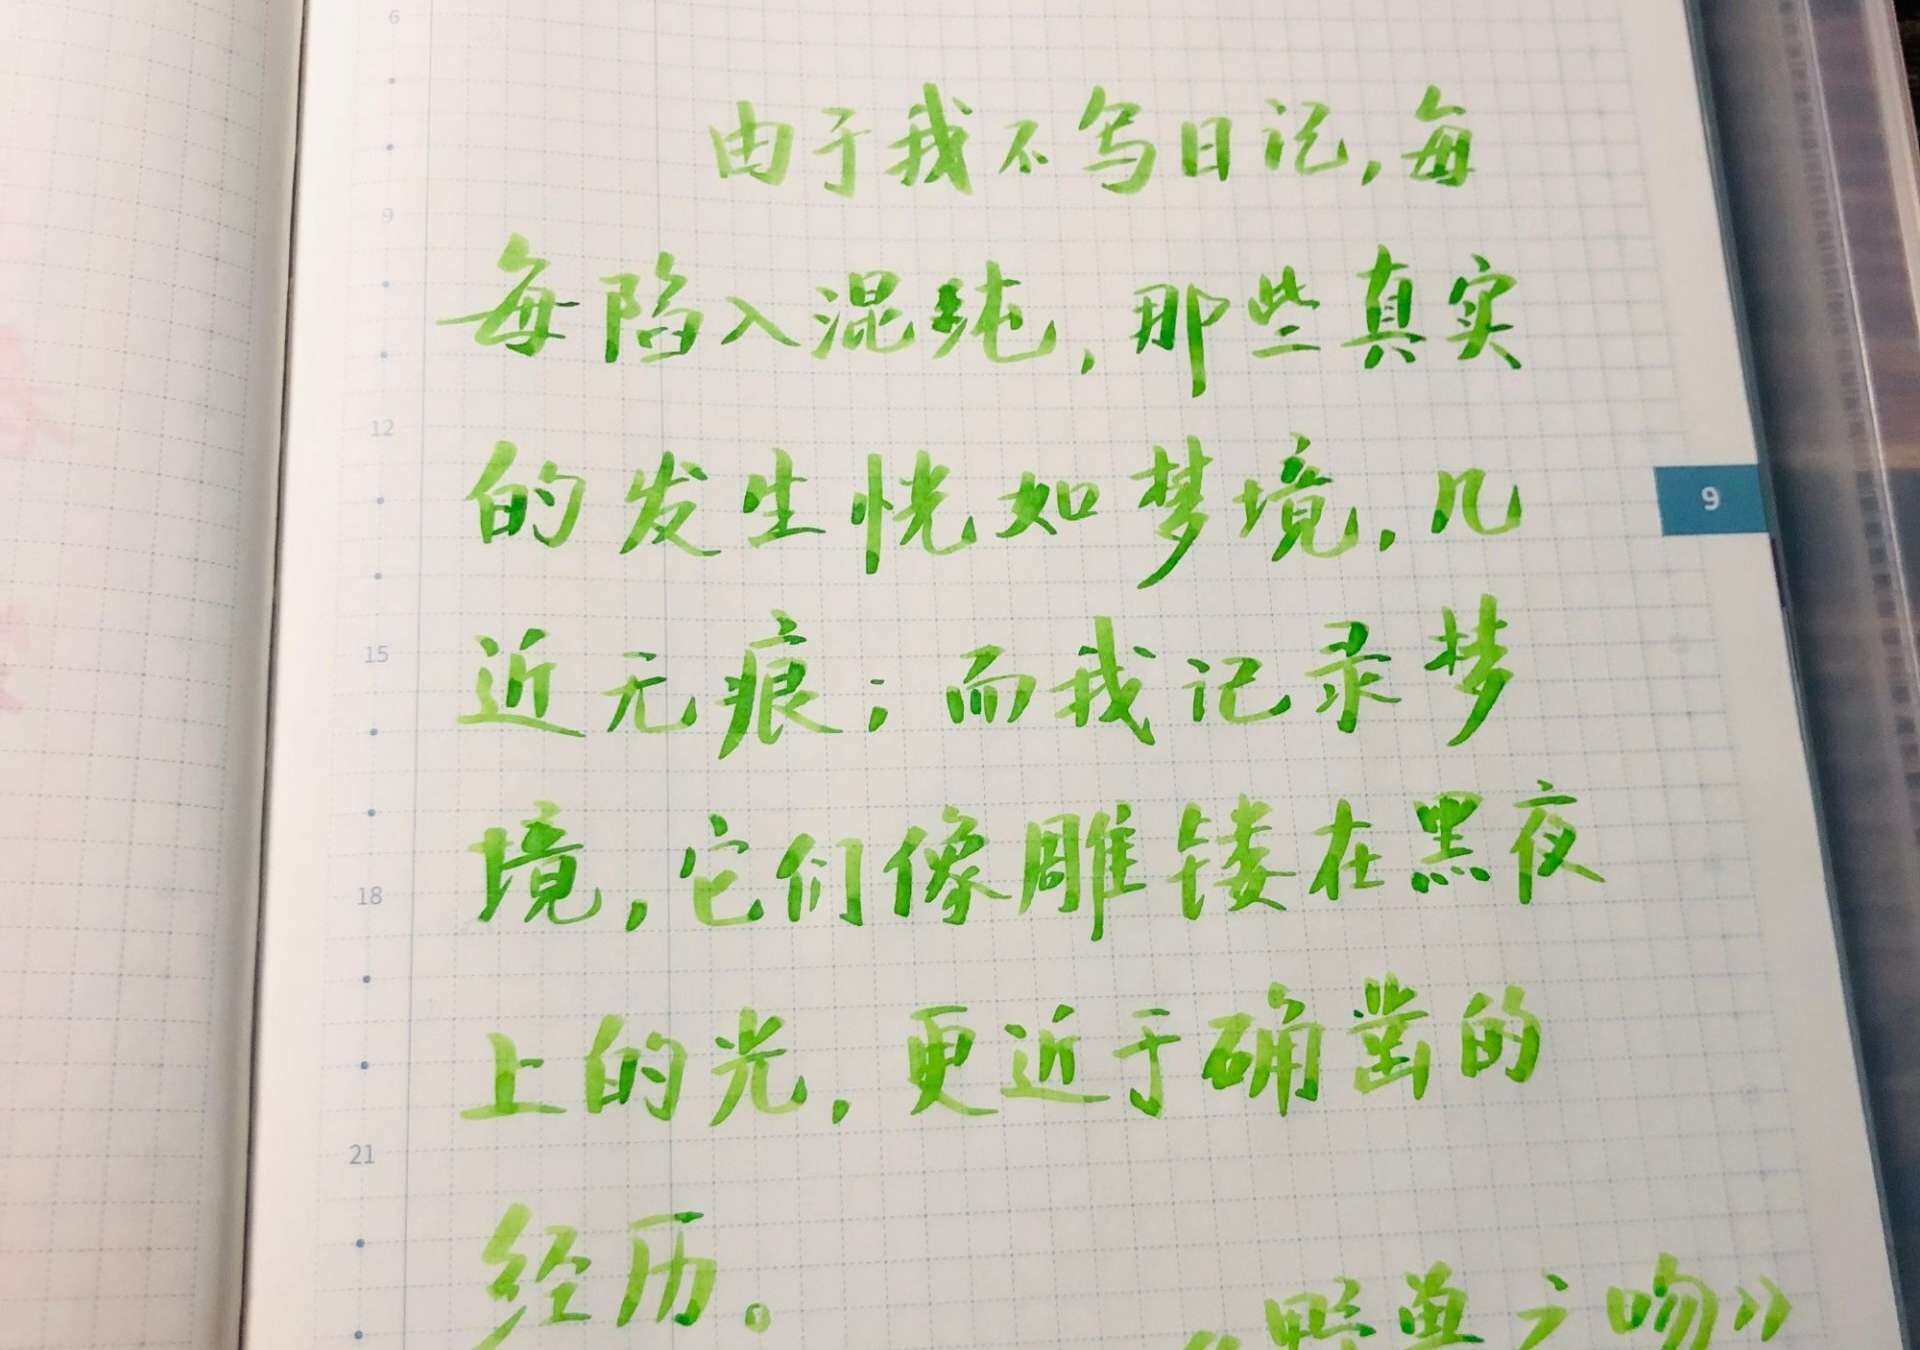 6
由于我不写日记，每
9
每陷入混纯，那些真实
12
的发生恍如梦境，几
9
15
近无痕；而我记录梦
境，它们像雕镂在黑夜
18
上的光，更近于确凿的
21
经历。
《野兽之吻》